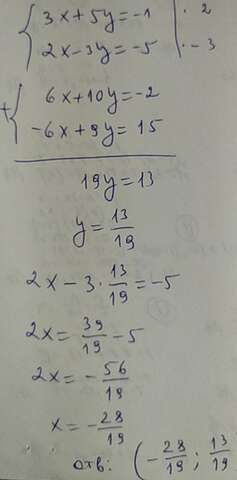 { 3x+5y=-1 | · 2
2x-3y=-5 | · -3
+{ 6x+10y=-2
-6x+9y=15
19y=13
y=13/19
2x-3·13/19=-5
2x=39/19-5
2x=-56/19
x=-28/19
отв: (-28/19; 13/19